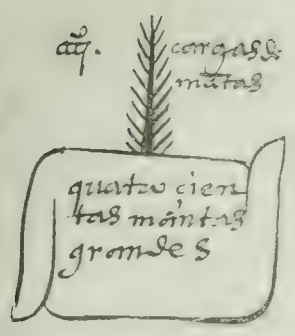 cargas de
mātas
quatro cien
tas mantas
grandes